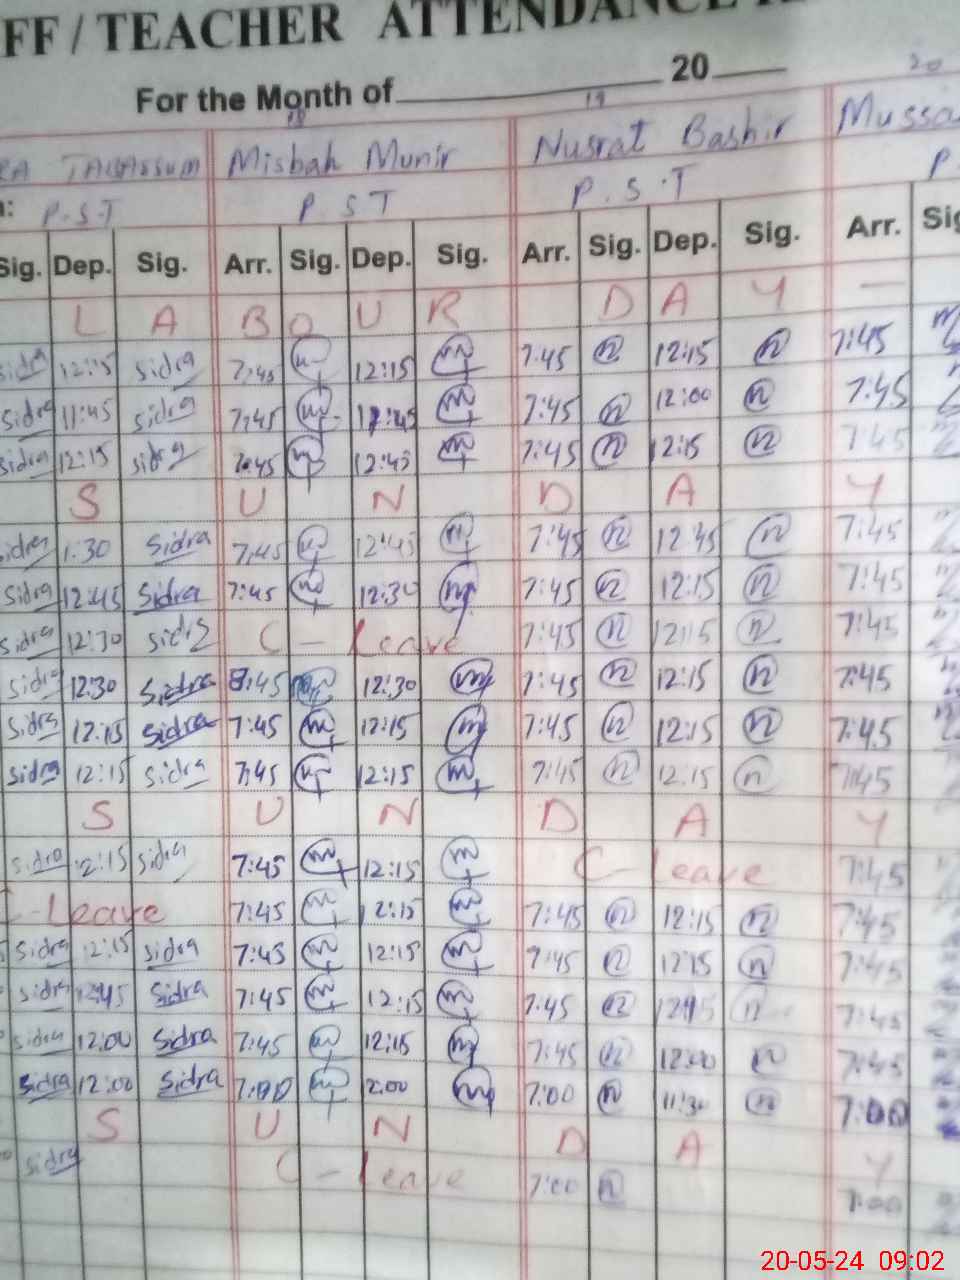 FF / TEACHER ATTENDANCE
For the Month of 20
18 19 20
TABASSUM Misbah Munir Nusrat Bashir Mussa
P.S.T P S T P.S.T P.
Sig. Dep. Sig. Arr. Sig. Dep. Sig. Arr. Sig. Dep. Sig. Arr. Sig
L A B O U R D A Y —
sidra 12:15 sidra 7:45 m 12:15 m 7:45 n 12:15 n 7:45
sidra 11:45 sidra 7:45 m 11:45 m 7:45 n 12:00 n 7:45
sidra 12:15 sidra 7:45 m 12:45 m 7:45 n 12:15 n 7:45
S U N D A Y
sidra 1:30 Sidra 7:45 m 12:45 m 7:45 n 12:45 n 7:45
sidra 12:45 Sidra 7:45 m 12:30 m 7:45 n 12:15 n 7:45
sidra 12:30 sidra C - Leave 7:45 n 12:15 n 7:45
sidra 12:30 Sidra 8:45 12:30 m 7:45 n 12:15 n 7:45
sidra 12:15 sidra 7:45 m 12:15 m 7:45 n 12:15 n 7:45
sidra 12:15 sidra 7:45 m 12:15 m 7:45 n 12:15 n 7:45
S U N D A Y
sidra 12:15 sidra 7:45 m 12:15 m C - leave 7:45
- Leave 7:45 m 12:15 m 7:45 n 12:15 n 7:45
sidra 12:15 sidra 7:45 m 12:15 m 7:45 n 12:15 n 7:45
sidra 12:45 Sidra 7:45 m 12:15 m 7:45 n n 7:45
sidra 12:00 Sidra 7:45 m 12:15 m 7:45 n 12:00 n 7:45
sidra 12:00 Sidra 7:00 m 2:00 m 7:00 n 11:30 n 7:00
S U N D A Y
sidra C - leave 7:00 n 7:00
20-05-24 09:02